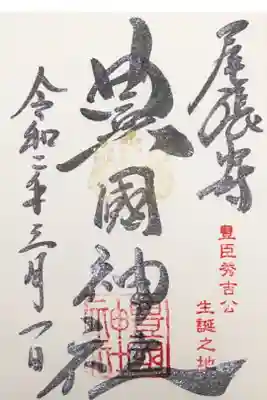 尾張中村
豊臣秀吉公
生誕之地
豊國神社
令和二年三月一日